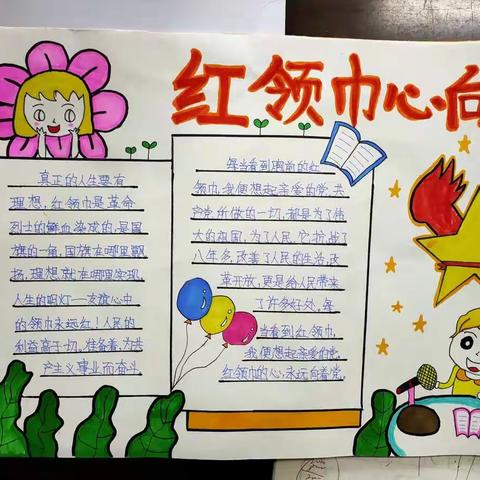 红领巾心向
真正的人生要有
理想，红领巾是革命
烈士的鲜血染成的，是国
旗的一角，国旗在哪里飘
扬，理想就在哪里实现，
人生的明灯一支旗心中
的领巾永远红！人民的
利益高于一切。准备着，为共
产主义事业而奋斗
每当看到胸前的红
领巾，我便想起亲爱的党，共
产党所做的一切，都是为了伟
大的祖国，为了人民，它抗战了
八年多，改善了人民的生活，改
革开放，更是给人民带来
了许多好处，每
当看到红领巾，
我便想起亲爱的党，
红领巾的心，永远向着党。